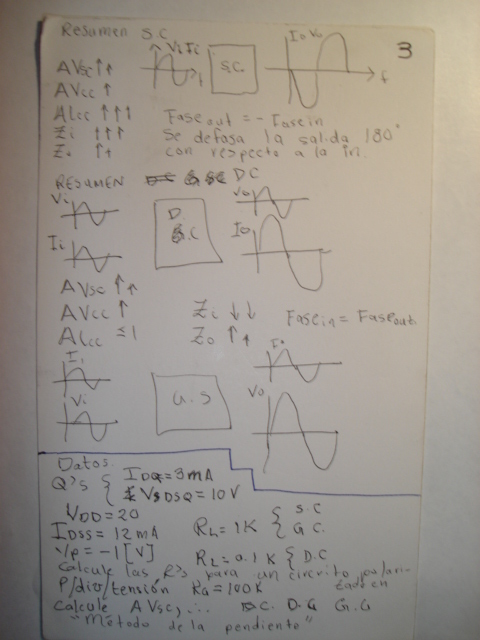 Resumen S.C
3
Vi Ii
t
S.C.
Io Vo
t
AVsc ↑↑
AVcc ↑
AIcc ↑↑↑
Zi ↑↑↑
Zo ↑↑
Faseout = - Fasein
Se defasa la salida 180°
con respecto a la in.
RESUMEN DC
Vi
Ii
D.
G.C
Vo
Io
AVsc ↑↑
AVcc ↑
AIcc ≤1
Zi ↓↓
Zo ↑↑
Fasein = Faseout.
Ii
Vi
G.S
Io
Vo
Datos.
Q's { IDQ = 3mA
VDSQ = 10V
VDD = 20
IDSS = 12mA
Vp = -1 [V]
RL = 1K { S.C
G.C.
RL = 0.1K { D.C
Calcule las R's para un circuito polari-
zado en
P/div/tensión RG = 100K
Calcule AVsc, ... D.G G.G
"Método de la pendiente"